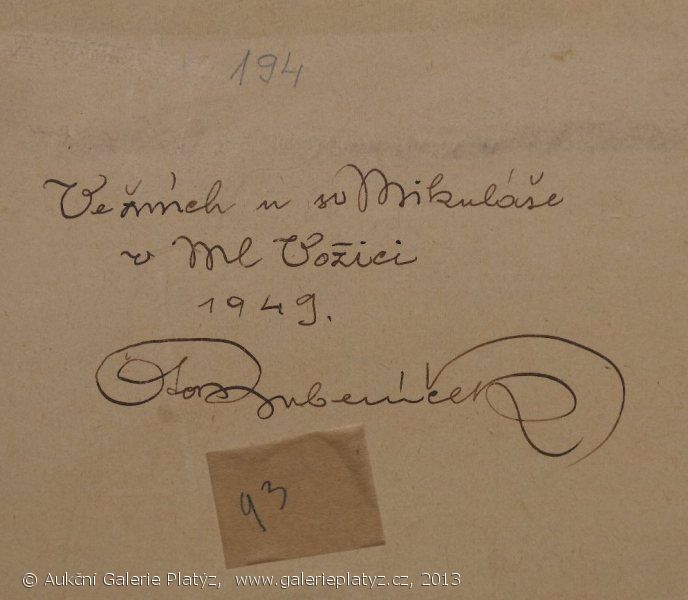 194
Ve žních u sv Mikuláše
v Ml Vožici
1949.
Ota Bubeníček
93
© Aukční Galerie Platýz, www.galerieplatyz.cz, 2013